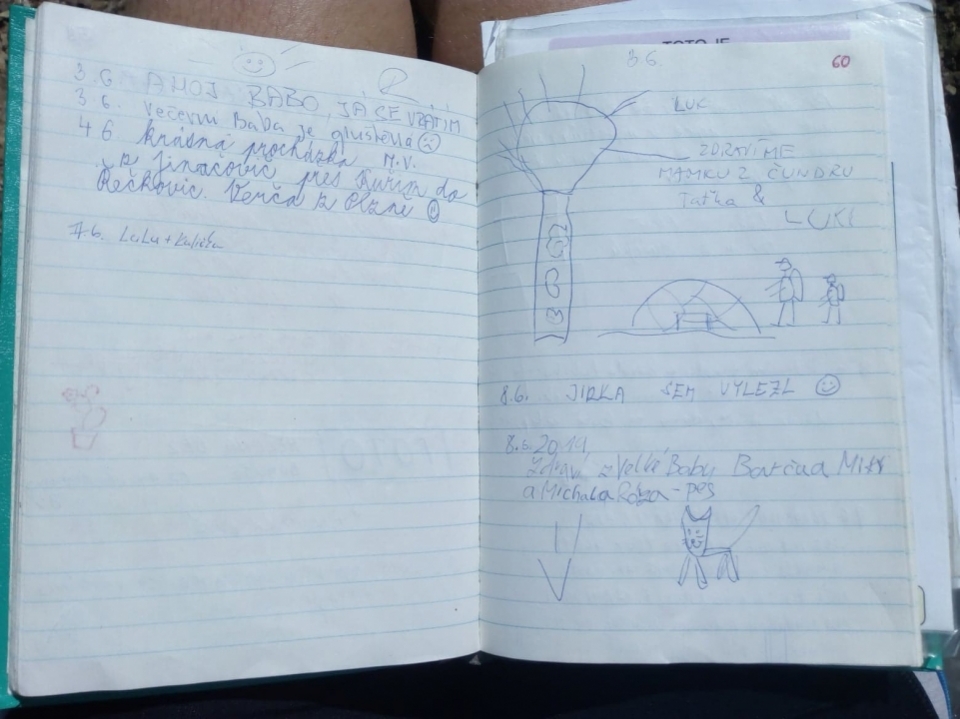 3.6. AHOJ BABO, JÁ SE VRÁTÍM
3.6. Večerní Baba je
4.6 krásná procházka M.V.
z Jinačovic přes Kuřim do
Řečkovic. Verča z Plzně
7.6. LuLu +
TOTO JE
3.6.
60
LUK
ZDRAVÍME
MAMKU Z ČUNDRU
Taťka &
LUKI
8.6. JIRKA SEM VYLEZL
8.6.2014,
Zdraví z Velké Baby
a Michala Róza - pes